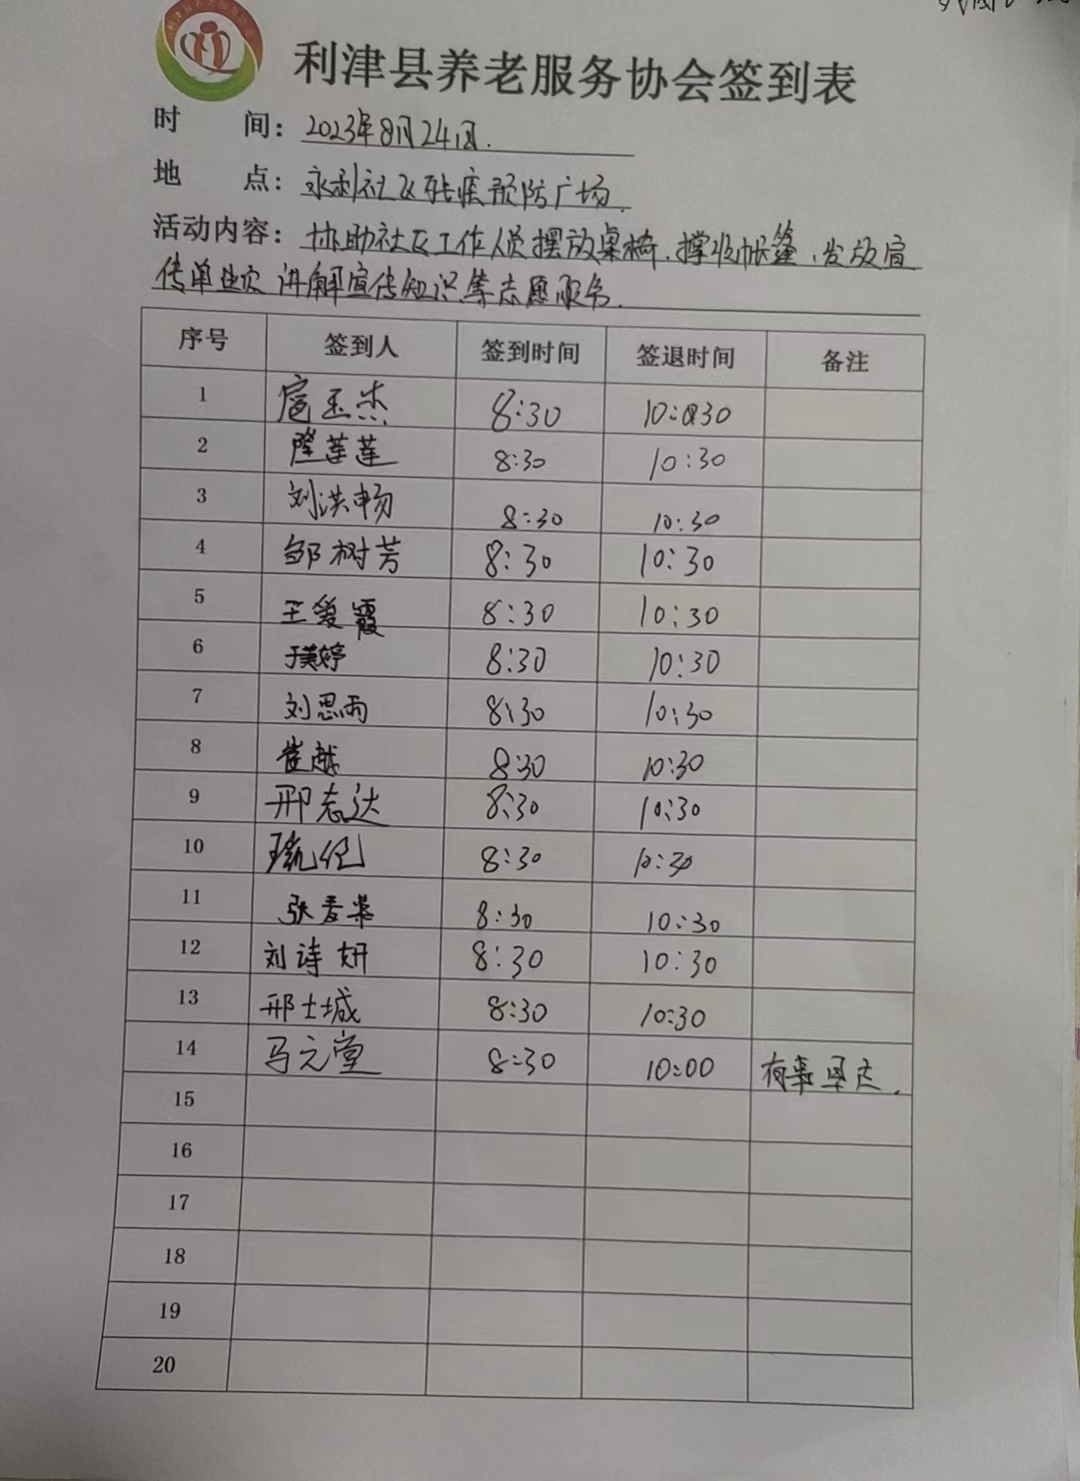 利津县养老服务协会签到表
时 间：2023年8月24日.
地 点：永利社区残疾预防广场.
活动内容：协助社区工作人员摆放桌椅、撑收帐篷、发放宣
传单 讲解宣传知识等志愿服务.
序号 签到人 签到时间 签退时间 备注
1 扈玉杰 8:30 10:30
2 隆莲莲 8:30 10:30
3 刘洪畅 8:30 10:30
4 邹树芳 8:30 10:30
5 王爱霞 8:30 10:30
6 于美婷 8:30 10:30
7 刘思雨 8:30 10:30
8 崔越 8:30 10:30
9 邢志达 8:30 10:30
10 8:30 10:30
11 张 8:30 10:30
12 刘诗妍 8:30 10:30
13 邢士城 8:30 10:30
14 马元堂 8:30 10:00 有事早退.
15
16
17
18
19
20